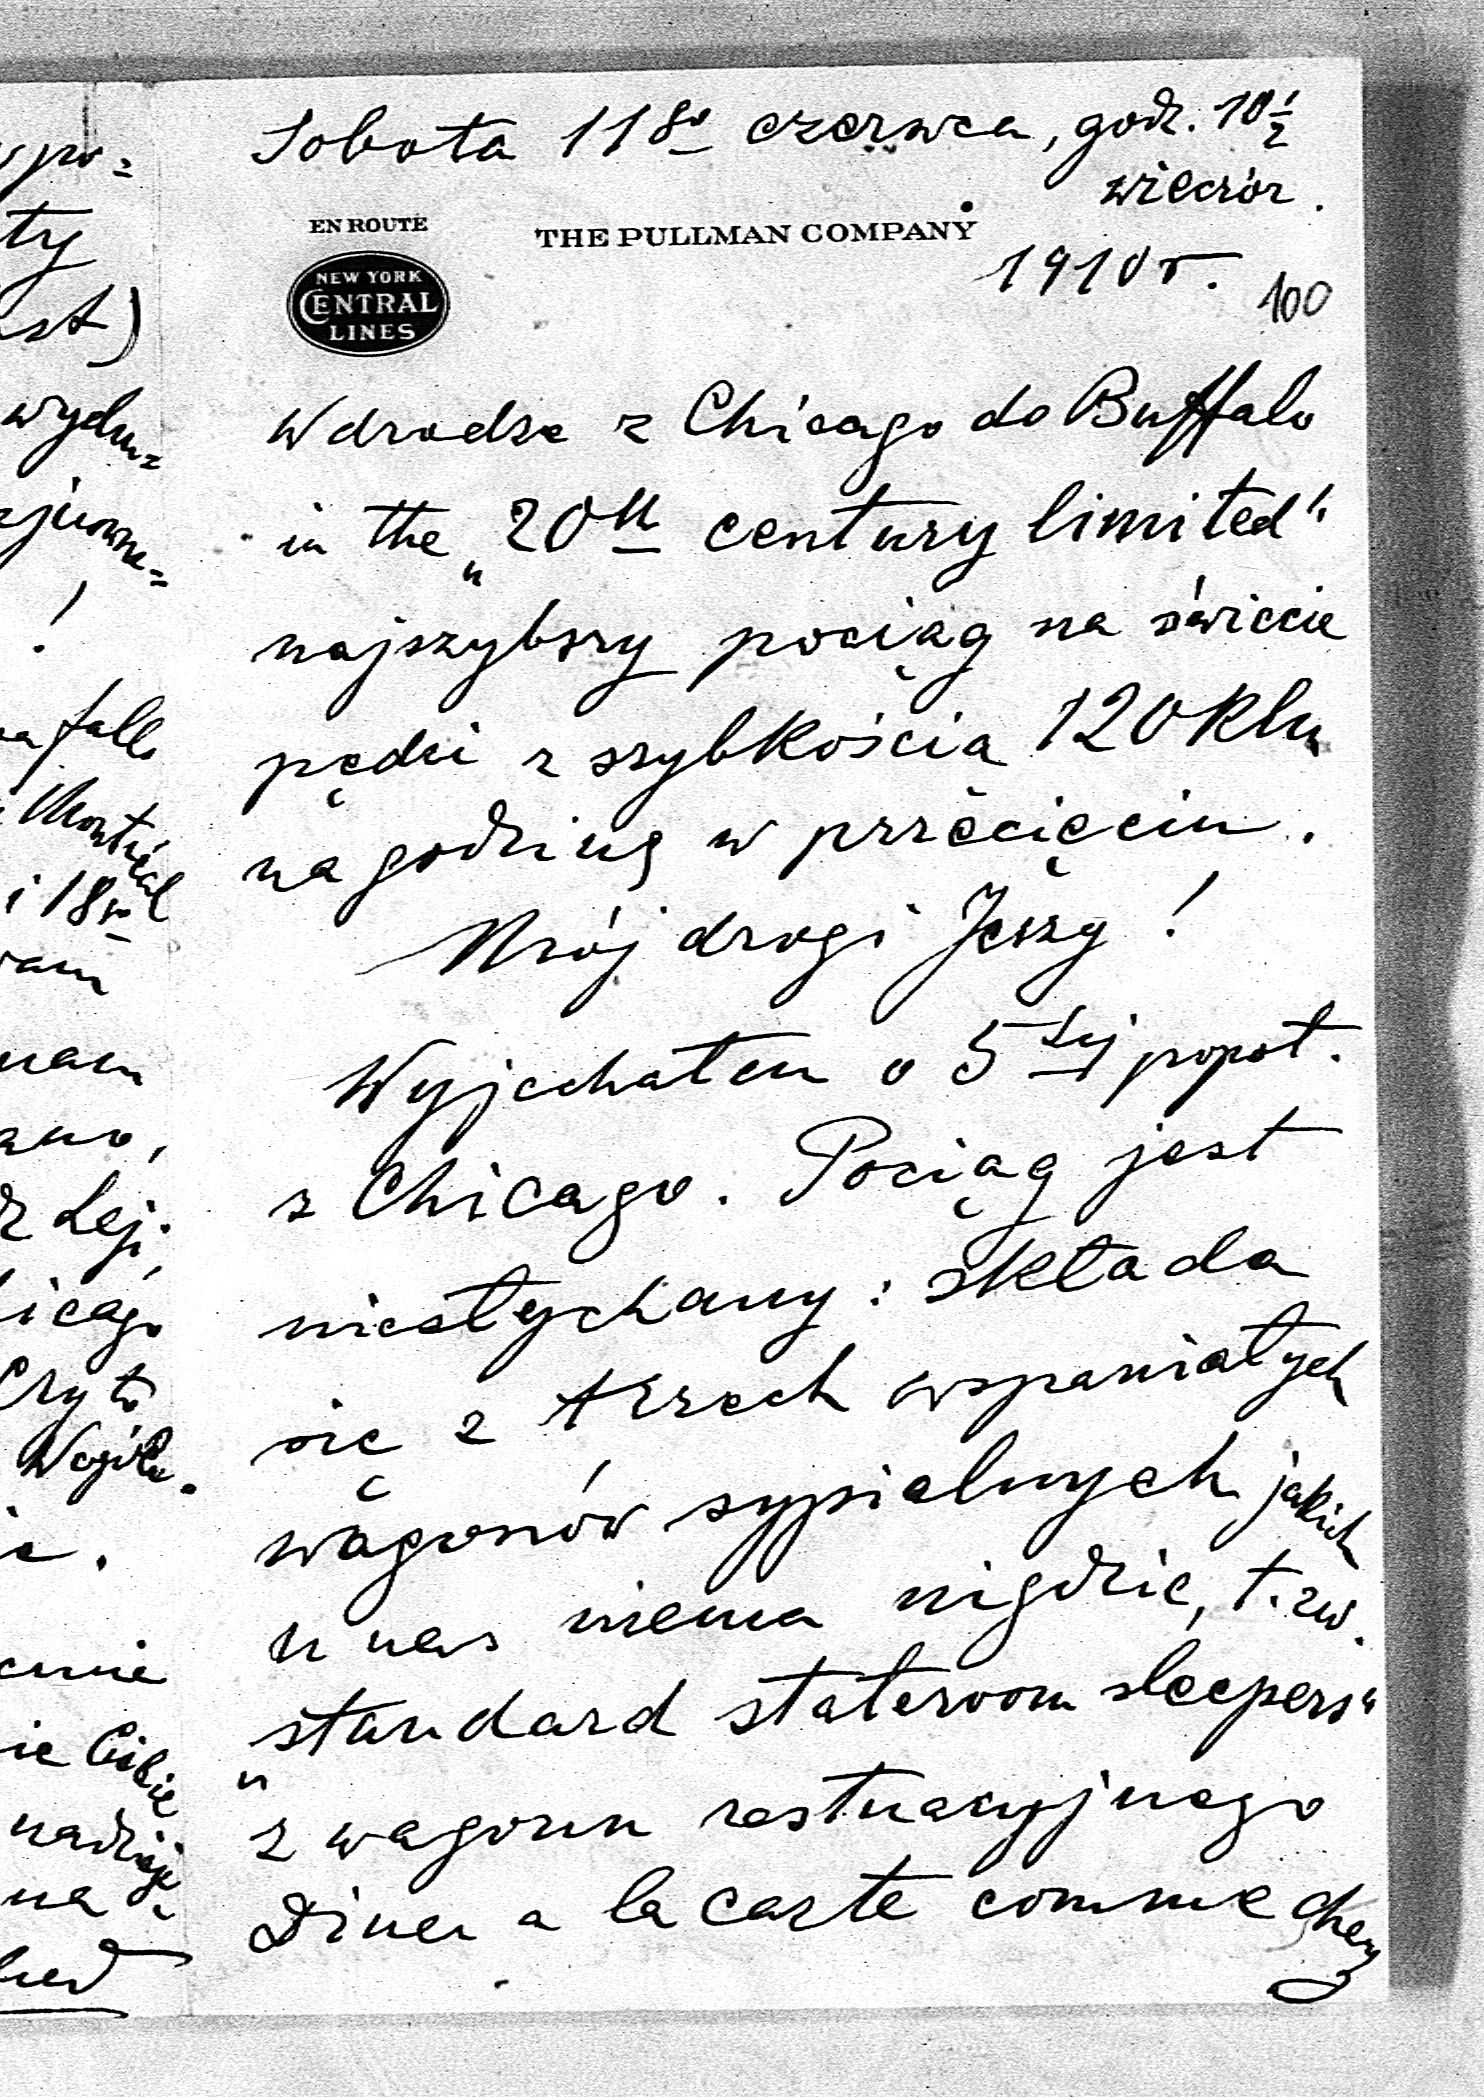 Sobota 11go czerwca, godz. 10 1/2
wieczór.
EN ROUTE
THE PULLMAN COMPANY
NEW YORK
CENTRAL
LINES
1910 r.
100
W drodze z Chicago do Buffalo
in the „20th century limited“
najszybszy pociąg na świecie
pędzi z szybkością 120 klm
na godzinę w przecięciu.
Mój drogi Jerzy!
Wyjechałem o 5tej popoł.
z Chicago. Pociąg jest
niesłychany: składa
się z trzech wspaniałych
wagonów sypialnych jakich
u nas niema nigdzie, t. zw.
„standard stateroom sleepers“
z wagonu restauracyjnego
Diner a la carte comme chez
ty
wydu=
!
falls
Montreal
i 18go
nam
Chicago
Czy to
nadzieję
na